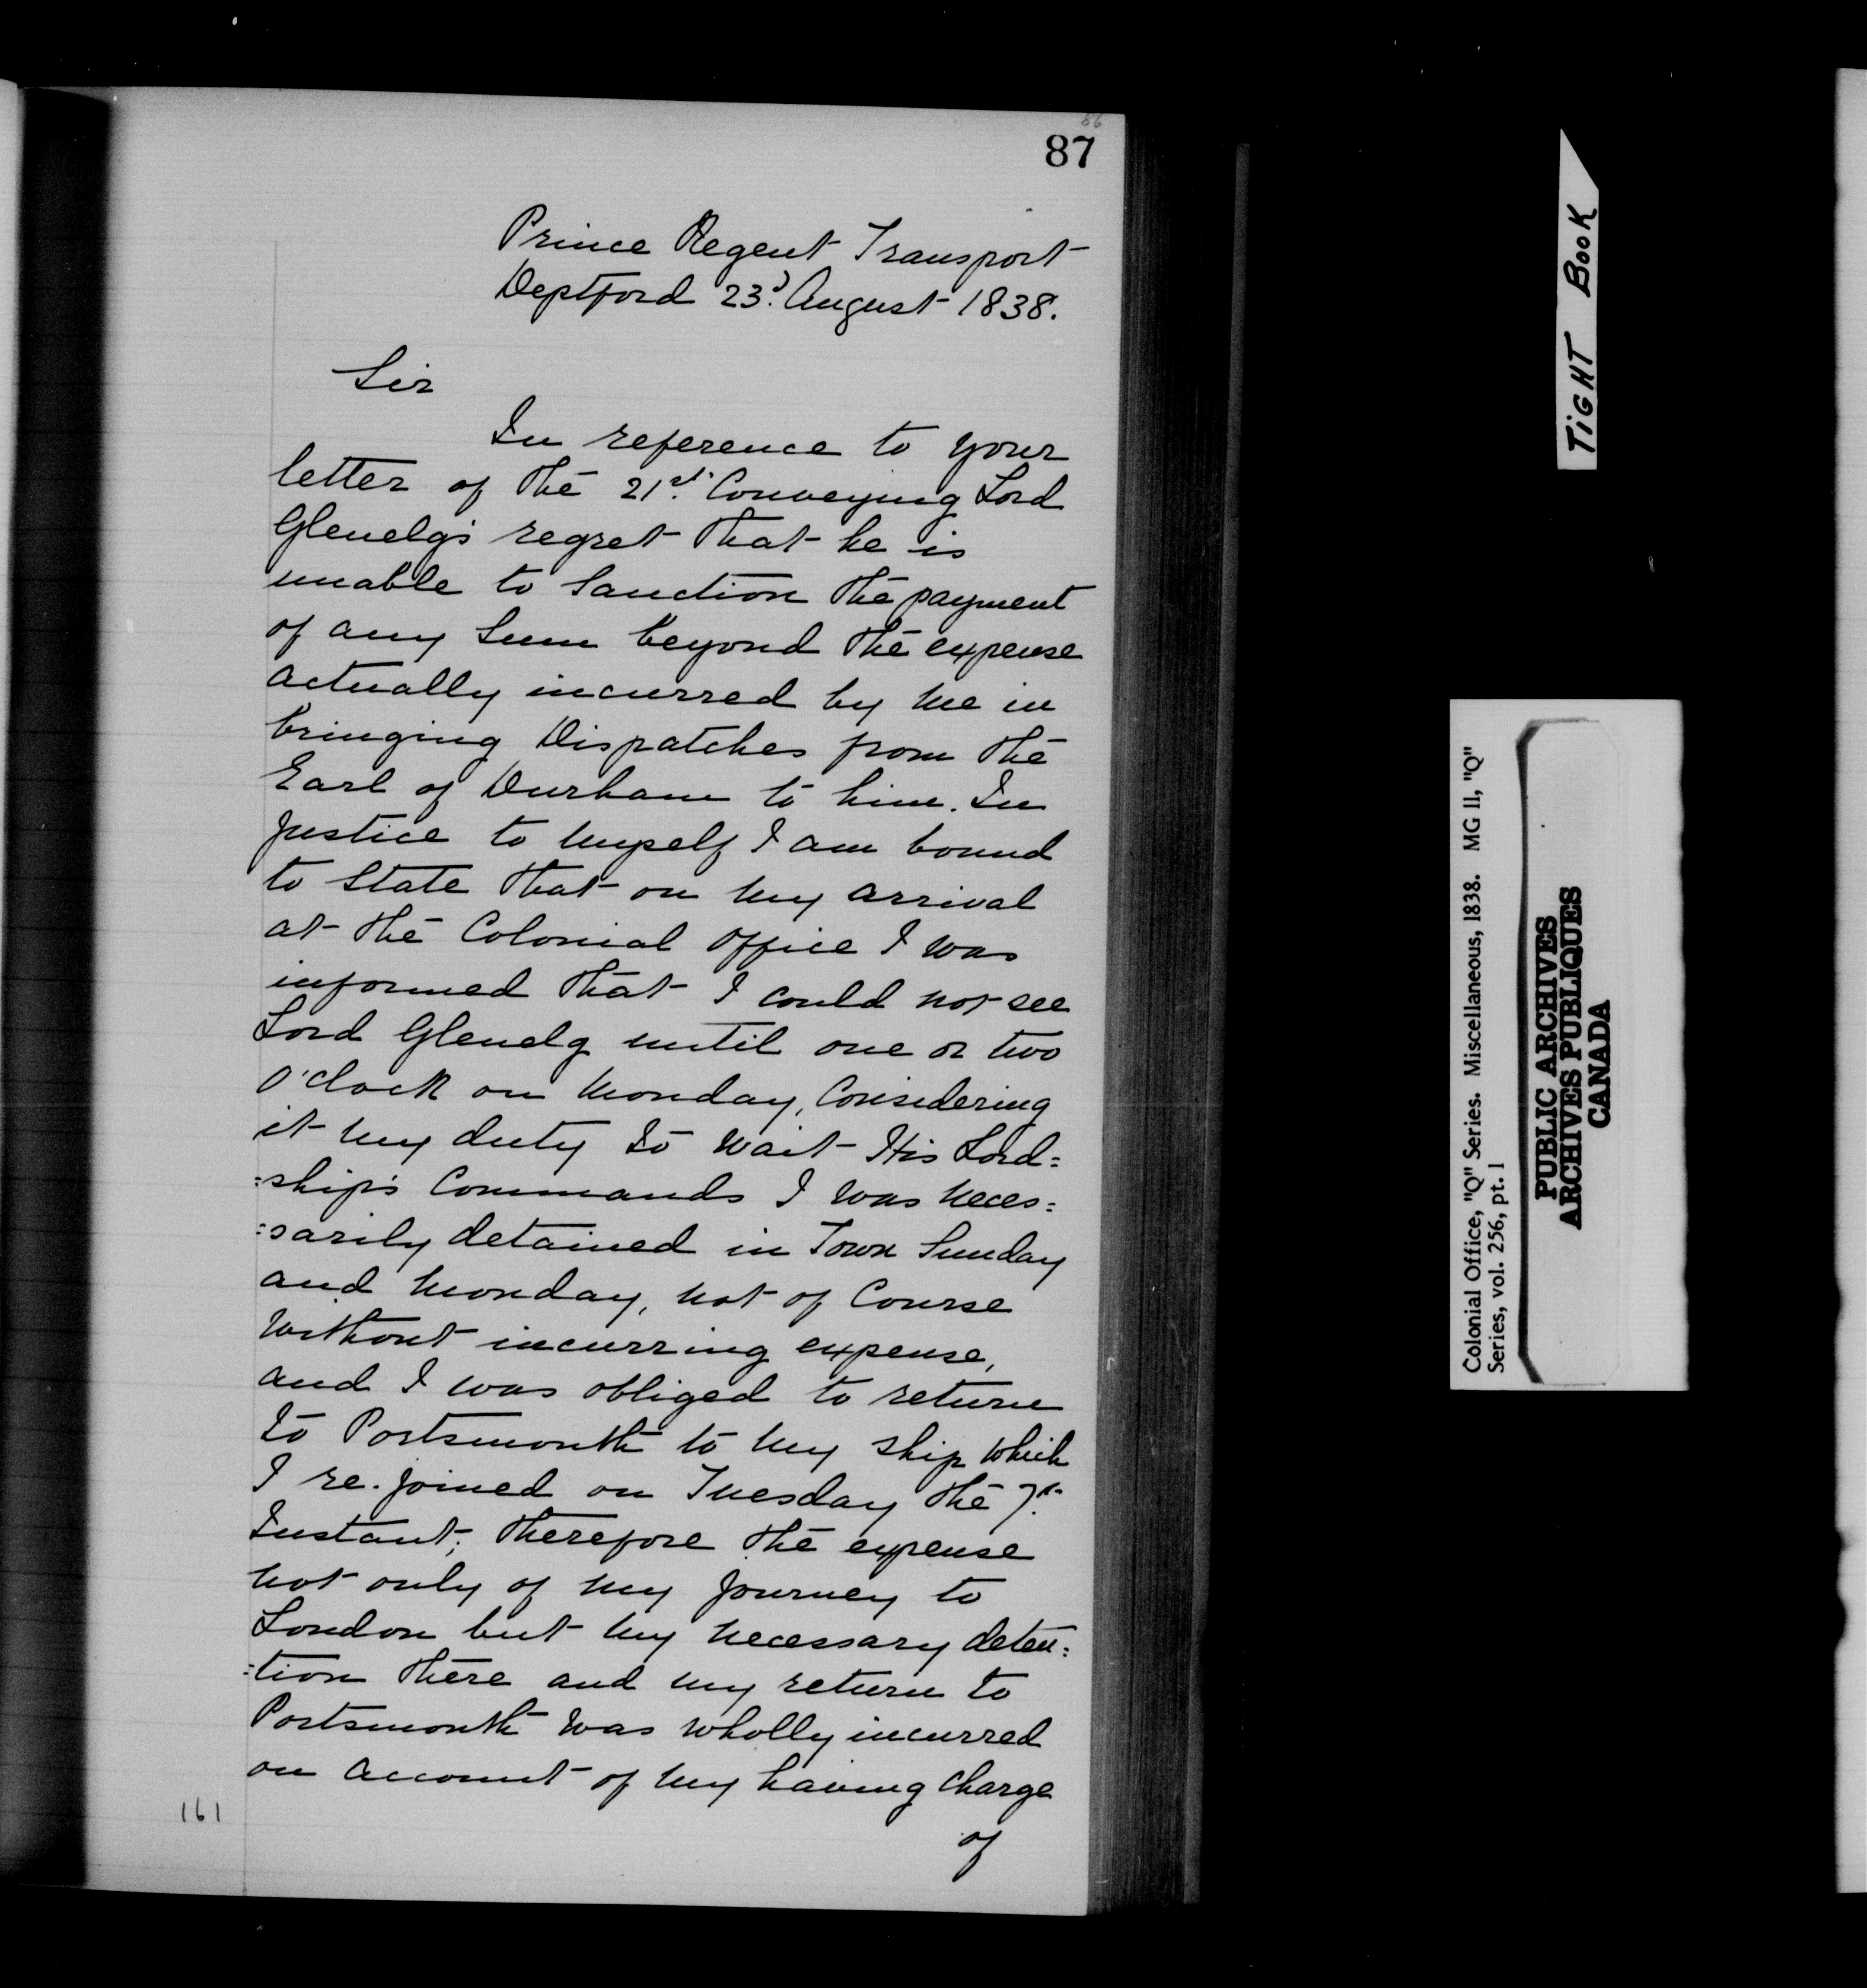 86
87
Prince Regent Transport
Deptford 23d. August 1838.
Sir
In reference to your
letter of the 21st. Conveying Lord
Glenelg's regret that he is
unable to Sanction the payment
of any Sum beyond the expense
actually incurred by me in
bringing Dispatches from the
Earl of Durham to him. In
Justice to myself I am bound
to State that on my arrival
at the Colonial Office I was
informed that I could not see
Lord Glenelg until one or two
O'clock on Monday, Considering
it my duty to wait His Lord=
=ship's Commands I was neces=
=sarily detained in Town Sunday
and Monday, not of Course
without incurring expense,
and I was obliged to return
to Portsmouth to my ship which
I re-joined on Tuesday the 7th.
Instant; therefore the expense
not only of my Journey to
London but my necessary deten=
=tion there and my return to
Portsmouth was wholly incurred
on account of my having charge
of
161
TIGHT BOOK
Colonial Office, "Q" Series. Miscellaneous, 1838. MG 11, "Q"
Series, vol. 256, pt. 1
PUBLIC ARCHIVES
ARCHIVES PUBLIQUES
CANADA